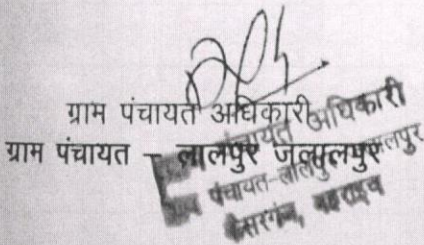 ग्राम पंचायत अधिकारी
ग्राम पंचायत - लालपुर जलालपुर
पंचायत अधिकारी
पंचायत-लालपुर
कैसरगंज, बहराइच